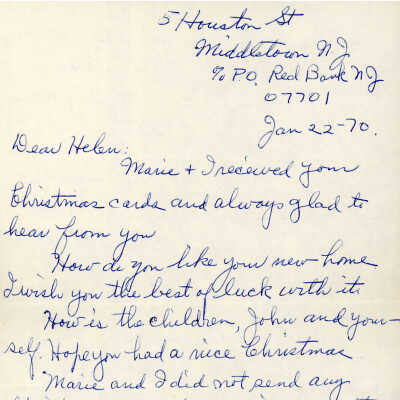 5 Houston St
Middletown N J
℅ P.O. Red Bank N J
07701
Jan 22-70.
Dear Helen:
Marie + I received your
Christmas cards and always glad to
hear from you
How do you like your new home
I wish you the best of luck with it.
How is the children, John and your-
self. Hope you had a nice Christmas.
Marie and I did not send any